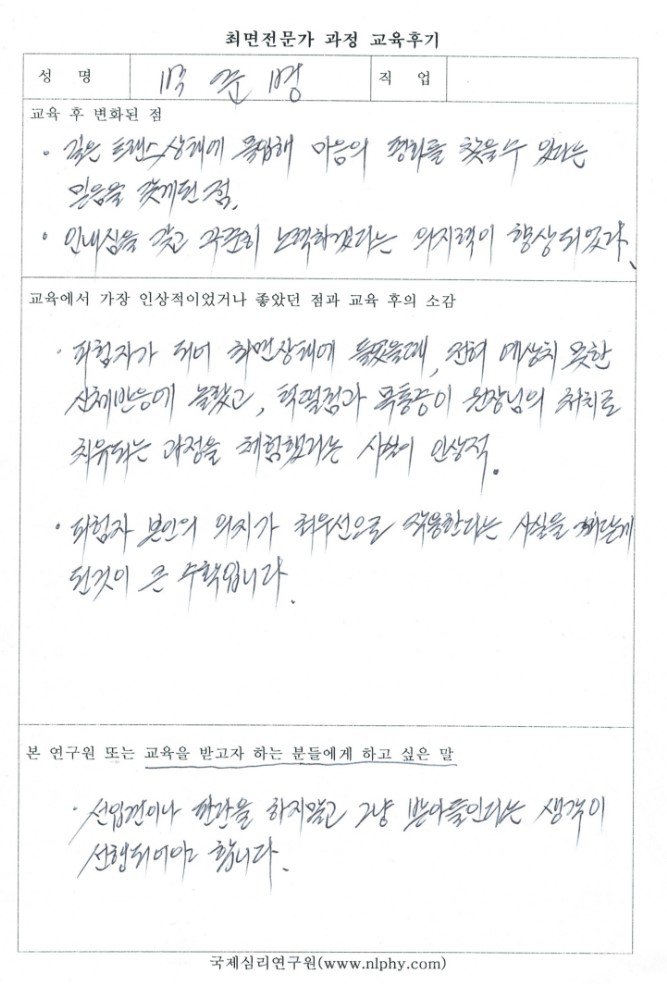 최면전문가 과정 교육후기
성 명 박 준 명 직 업
교육 후 변화된 점
· 깊은 트랜스상태에 몰입해 마음의 평화를 찾을수 있다는
믿음을 갖게된 점.
· 인내심을 갖고 꾸준히 노력하겠다는 의지력이 향상되었다.
교육에서 가장 인상적이었거나 좋았던 점과 교육 후의 소감
· 피험자가 되어 최면상태에 들었을때, 전혀 예상치 못한
신체반응에 놀랐고, 목통증이 원장님의 처치로
치유되는 과정을 체험했다는 사실이 인상적.
· 피험자 본인의 의지가 최우선으로 작용한다는 사실을 깨닫게
된것이 큰 수확입니다.
본 연구원 또는 교육을 받고자 하는 분들에게 하고 싶은 말
· 선입견이나 판단을 하지말고 그냥 받아들인다는 생각이
선행되어야 합니다.
국제심리연구원(www.nlphy.com)